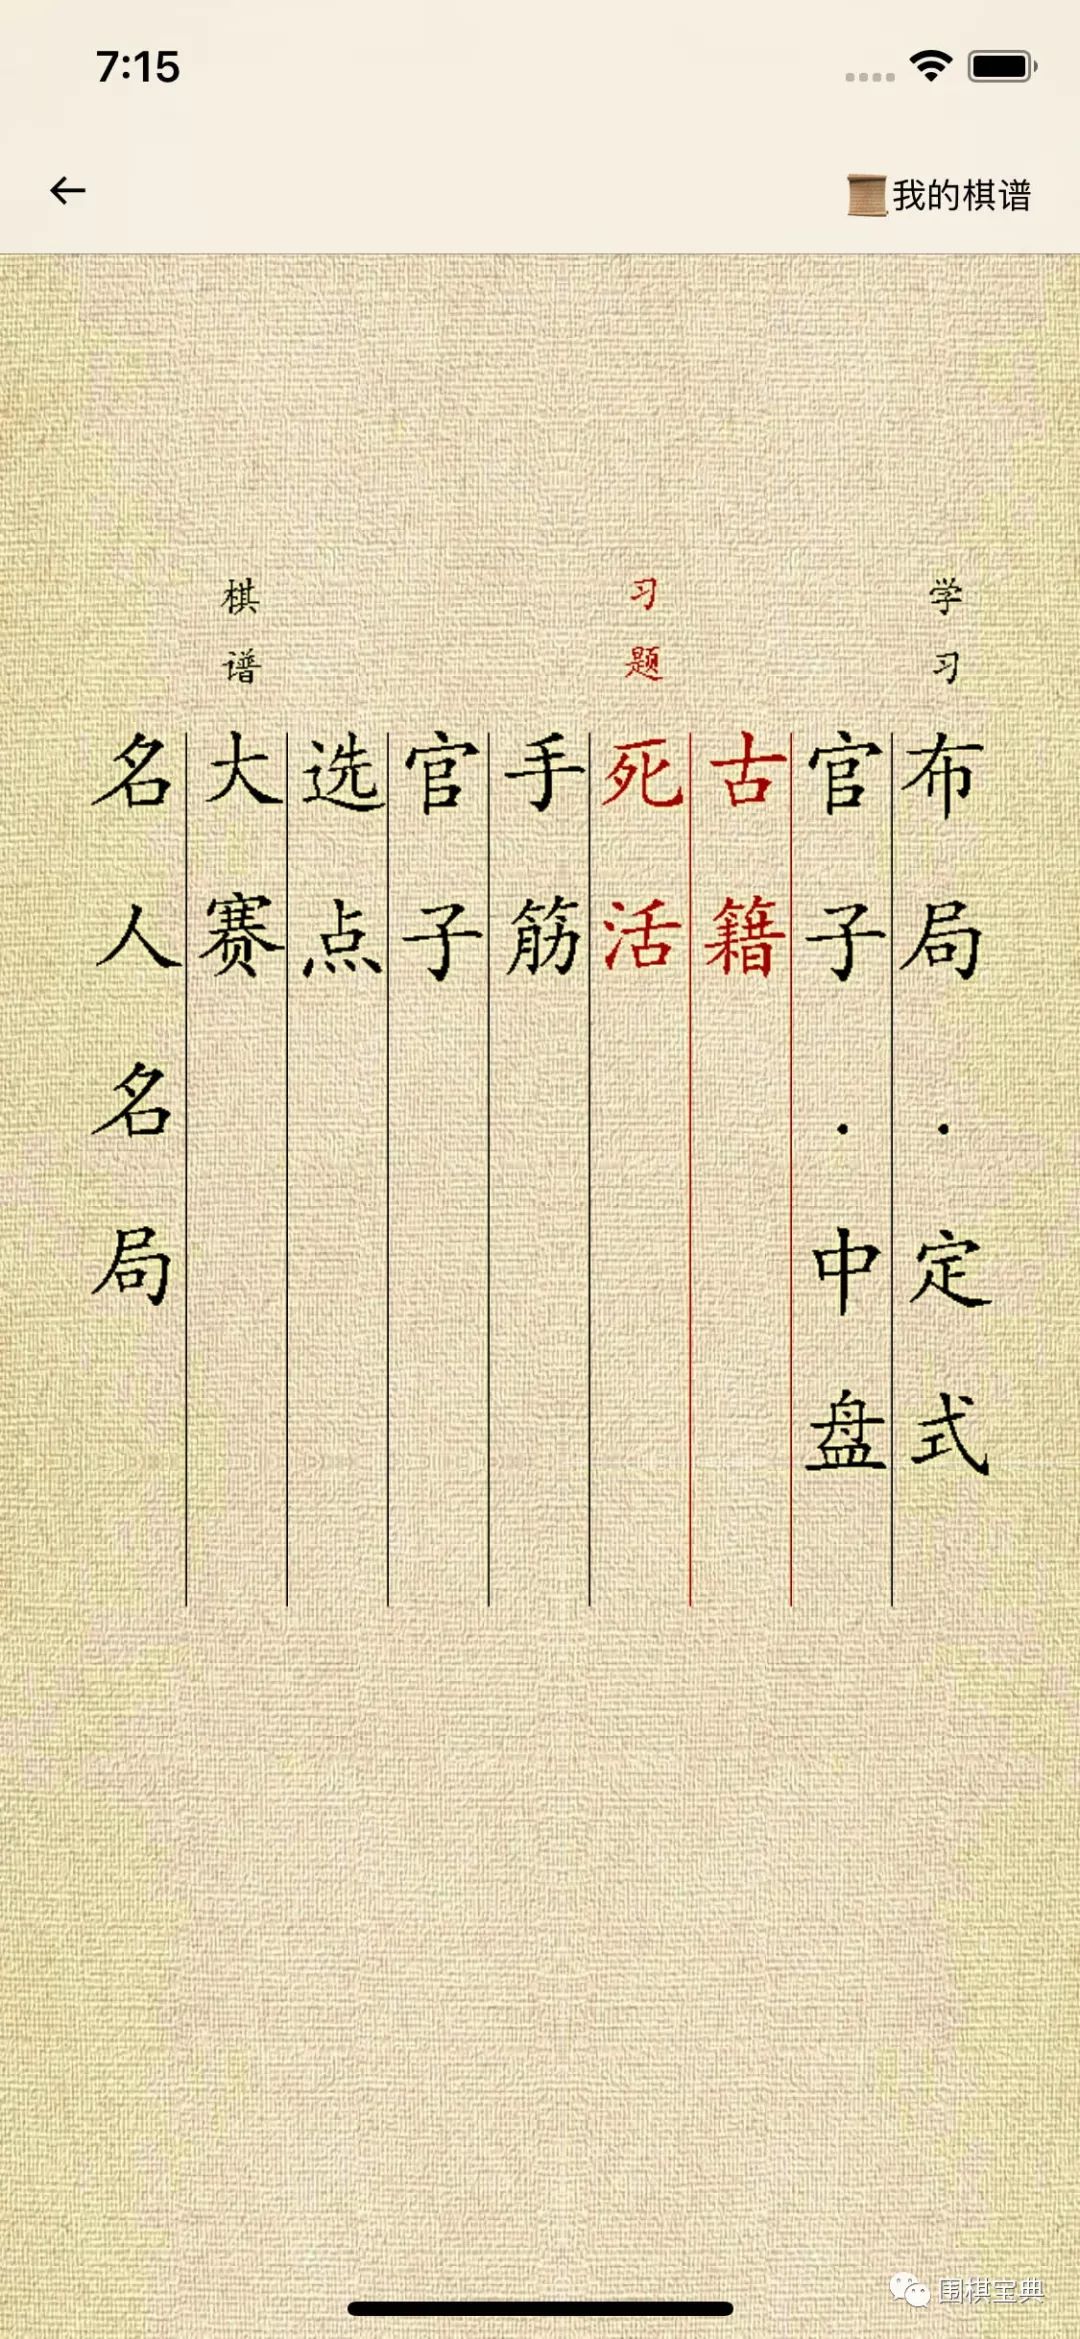 7:15
我的棋谱
学习
布局·定式
官子·中盘
习题
古籍
死活
手筋
官子
选点
棋谱
大赛
名人名局
围棋宝典